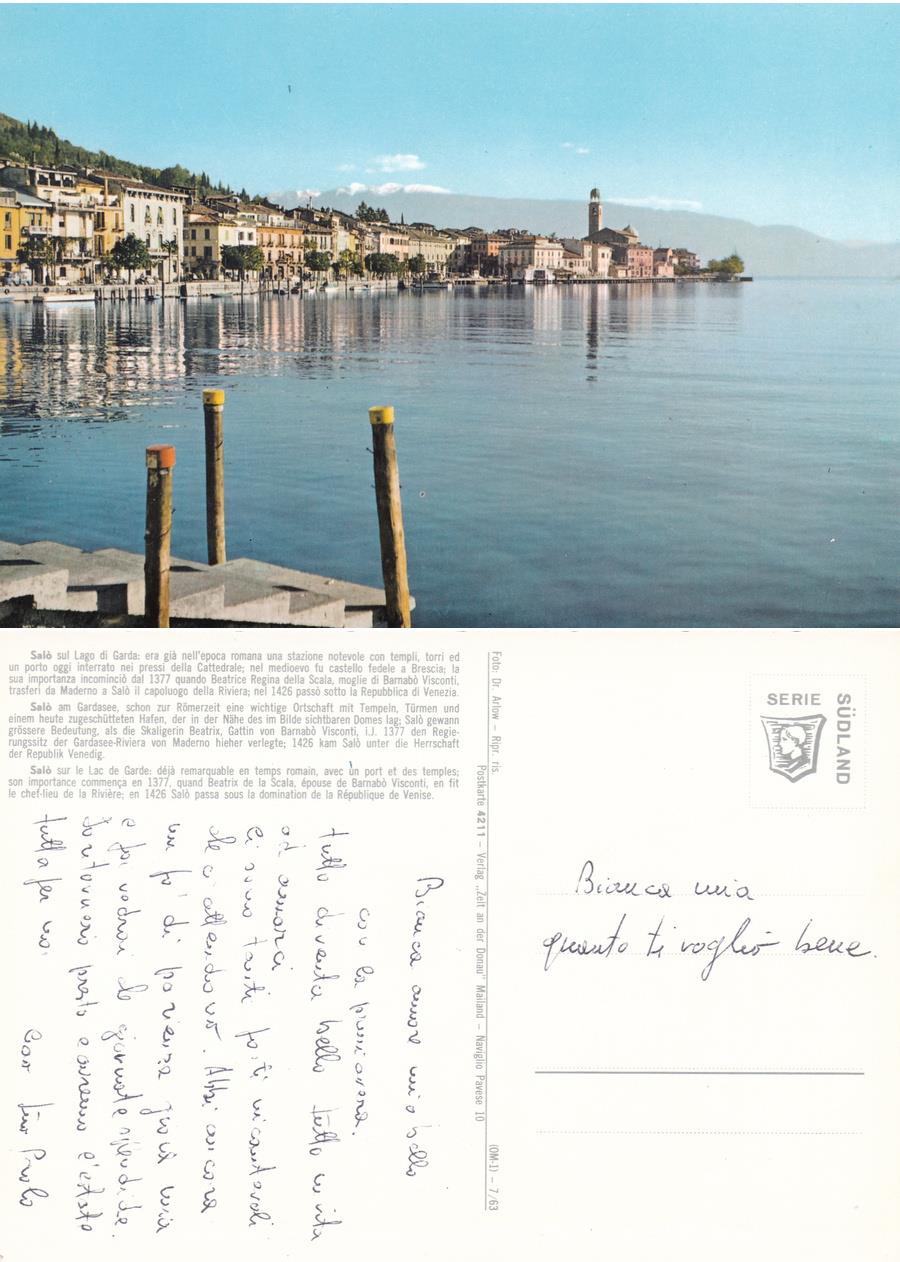 Salò sul Lago di Garda: era già nell'epoca romana una stazione notevole con templi, torri ed
un porto oggi interrato nei pressi della Cattedrale; nel medioevo fu castello fedele a Brescia; la
sua importanza incominciò dal 1377 quando Beatrice Regina della Scala, moglie di Barnabò Visconti,
trasferì da Maderno a Salò il capoluogo della Riviera; nel 1426 passò sotto la Repubblica di Venezia.
Salò am Gardasee, schon zur Römerzeit eine wichtige Ortschaft mit Tempeln, Türmen und
einem heute zugeschütteten Hafen, der in der Nähe des im Bilde sichtbaren Domes lag; Salò gewann
grössere Bedeutung, als die Skaligerin Beatrix, Gattin von Barnabò Visconti, i.J. 1377 den Regie-
rungssitz der Gardasee-Riviera von Maderno hieher verlegte; 1426 kam Salò unter die Herrschaft
der Republik Venedig.
Salò sur le Lac de Garde: déjà remarquable en temps romain, avec un port et des temples;
son importance commença en 1377, quand Beatrix de la Scala, épouse de Barnabò Visconti, en fit
le chef-lieu de la Rivière; en 1426 Salò passa sous la domination de la République de Venise.
Bianca amore mio bello
con la primavera
tutto diventa bello tutto invita
ad amarci
Ci sono tanti posti incantevoli
che ci attendono. Abbi ancora
un po' di pazienza gioia mia
e poi vedrai che giornate splendide.
presto e avremo l'estate
tutta per noi
Ciao tuo Paolo
Foto: Dr. Arlow – Ripr. ris.
Postkarte 4211 – Verlag „Zelt an der Donau" Mailand – Naviglio Pavese 10
(OM-1) – 7/63
SERIE
SÜDLAND
Bianca mia
quanto ti voglio bene.